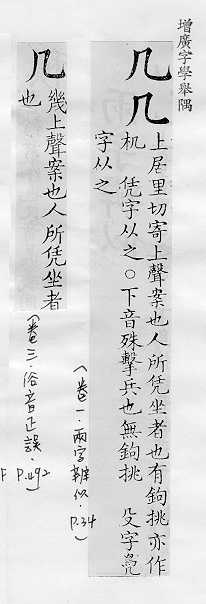 增廣字學舉隅
几𠘧 上居里切寄上聲案也人所凭坐者也有鉤挑亦作
机 凭字从之○下音殊擊兵也無鉤挑 殳字鳧
字从之
(卷一.兩字辨似.P.34)
几 幾上聲案也人所凭坐者
也
(卷三.俗音正誤.P.492)